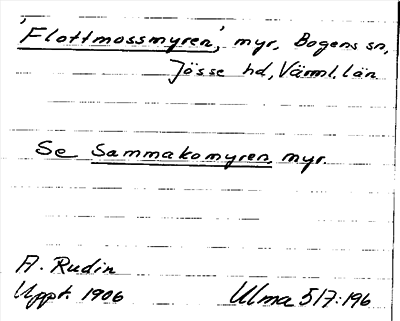 'Flottmossmyren', myr, Bogens sn,
Jösse hd, Värml. län
Se Sammakomyren, myr.
A. Rudin
Uppt. 1906
Ulma 517:196